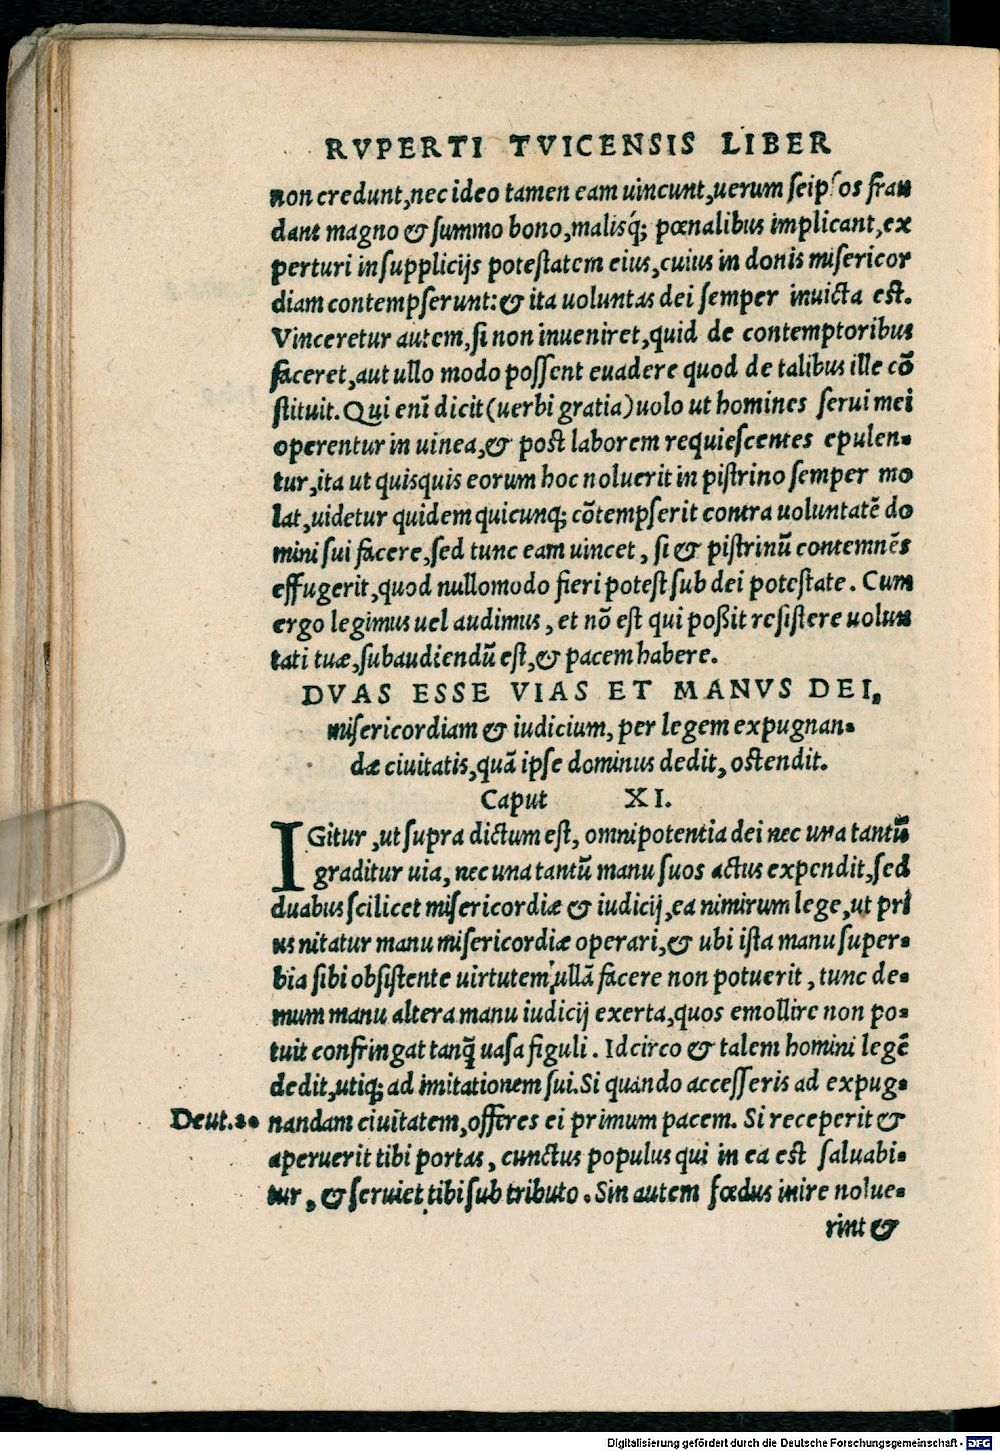 RVPERTI TVICENSIS LIBER
non credunt, nec ideo tamen eam uincunt, uerum seipsos frau
dant magno & summo bono, malisq́; pœnalibus implicant, ex
perturi in supplicijs potestatem eius, cuius in donis misericor
diam contempserunt: & ita uoluntas dei semper inuicta est.
Vinceretur autem, si non inueniret, quid de contemptoribus
faceret, aut ullo modo possent euadere quod de talibus ille cõ
stituit. Qui enĩ dicit (uerbi gratia) uolo ut homines serui mei
operentur in uinea, & post laborem requiescentes epulen-
tur, ita ut quisquis eorum hoc noluerit in pistrino semper mo
lat, uidetur quidem quicunq; cõtempserit contra uoluntatẽ do
mini sui facere, sed tunc eam uincet, si & pistrinũ contemnẽs
effugerit, quod nullomodo fieri potest sub dei potestate. Cum
ergo legimus uel audimus, et nõ est qui poßit resistere uolun
tati tuæ, subaudiendũ est, & pacem habere.
DVAS ESSE VIAS ET MANVS DEI,
misericordiam & iudicium, per legem expugnan-
dæ ciuitatis, quã ipse dominus dedit, ostendit.
Caput XI.
IGitur, ut supra dictum est, omnipotentia dei nec una tantũ
graditur uia, nec una tantũ manu suos actus expendit, sed
duabus scilicet misericordiæ & iudicij, ea nimirum lege, ut pri
us nitatur manu misericordiæ operari, & ubi ista manu super-
bia sibi obsistente uirtutem ullã facere non potuerit, tunc de-
mum manu altera manu iudicij exerta, quos emollire non po-
tuit confringat tanq̃ uasa figuli. Idcirco & talem homini legẽ
dedit, utiq; ad imitationem sui. Si quando accesseris ad expug-
Deut.20 nandam ciuitatem, offeres ei primum pacem. Si receperit &
aperuerit tibi portas, cunctus populus qui in ea est saluabi-
tur, & seruiet tibi sub tributo. Sin autem fœdus inire nolue-
rint &
Digitalisierung gefördert durch die Deutsche Forschungsgemeinschaft - DFG